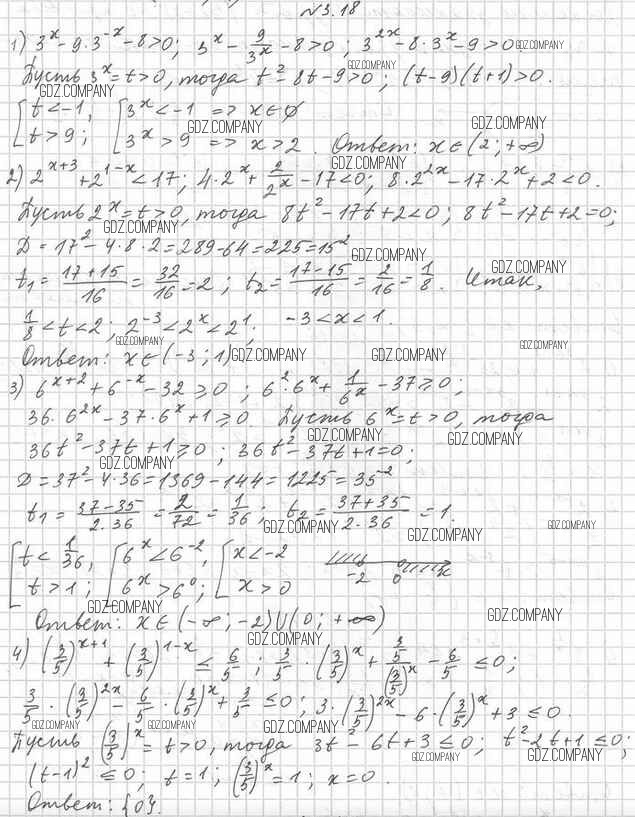 №3.18
1) 3^x - 9·3^-x - 8 > 0; 3^x - 9/3^x - 8 > 0; 3^2x - 8·3^x - 9 > 0 GDZ.COMPANY
Пусть 3^x = t > 0, тогда t^2 - 8t - 9 > 0; (t-9)(t+1) > 0. GDZ.COMPANY
GDZ.COMPANY
[ t < -1, [ 3^x < -1 => x ∈ ∅
t > 9; 3^x > 9 => x > 2. Ответ: x ∈ (2; +∞) GDZ.COMPANY GDZ.COMPANY
2) 2^x+3 + 2^1-x < 17; 4·2^x + 2/2^x - 17 < 0; 8·2^2x - 17·2^x + 2 < 0. GDZ.COMPANY
Пусть 2^x = t > 0, тогда 8t^2 - 17t + 2 < 0; 8t^2 - 17t + 2 = 0;
GDZ.COMPANY
D = 17^2 - 4·8·2 = 289 - 64 = 225 = 15^2 GDZ.COMPANY
t1 = (17+15)/16 = 32/16 = 2; t2 = (17-15)/16 = 2/16 = 1/8. Итак, GDZ.COMPANY
1/8 < t < 2; 2^-3 < 2^x < 2^1; -3 < x < 1.
GDZ.COMPANY GDZ.COMPANY
Ответ: x ∈ (-3; 1) GDZ.COMPANY GDZ.COMPANY
3) 6^x+2 + 6^-x - 32 ≥ 0; 6^2·6^x + 1/6^x - 37 ≥ 0;
36·6^2x - 37·6^x + 1 ≥ 0 Пусть 6^x = t > 0, тогда
GDZ.COMPANY GDZ.COMPANY
36t^2 - 37t + 1 ≥ 0; 36t^2 - 37t + 1 = 0;
GDZ.COMPANY
D = 37^2 - 4·36 = 1369 - 144 = 1225 = 35^2
t1 = (37-35)/(2·36) = 2/72 = 1/36; t2 = (37+35)/(2·36) = 1. GDZ.COMPANY GDZ.COMPANY
GDZ.COMPANY
[ t < 1/36, [ 6^x < 6^-2, [ x < -2
t > 1; 6^x > 6^0; x > 0 -2 0 x
GDZ.COMPANY GDZ.COMPANY
Ответ: x ∈ (-∞; -2) ∪ (0; +∞)
GDZ.COMPANY
4) (3/5)^x+1 + (3/5)^1-x ≤ 6/5; 3/5·(3/5)^x + (3/5)/(3/5)^x - 6/5 ≤ 0;
3/5·(3/5)^2x - 6/5·(3/5)^x + 3/5 ≤ 0; 3·(3/5)^2x - 6·(3/5)^x + 3 ≤ 0.
GDZ.COMPANY GDZ.COMPANY GDZ.COMPANY
Пусть (3/5)^x = t > 0, тогда 3t^2 - 6t + 3 ≤ 0; t^2 - 2t + 1 ≤ 0;
GDZ.COMPANY GDZ.COMPANY
(t-1)^2 ≤ 0; t = 1; (3/5)^x = 1; x = 0.
Ответ: {0}.